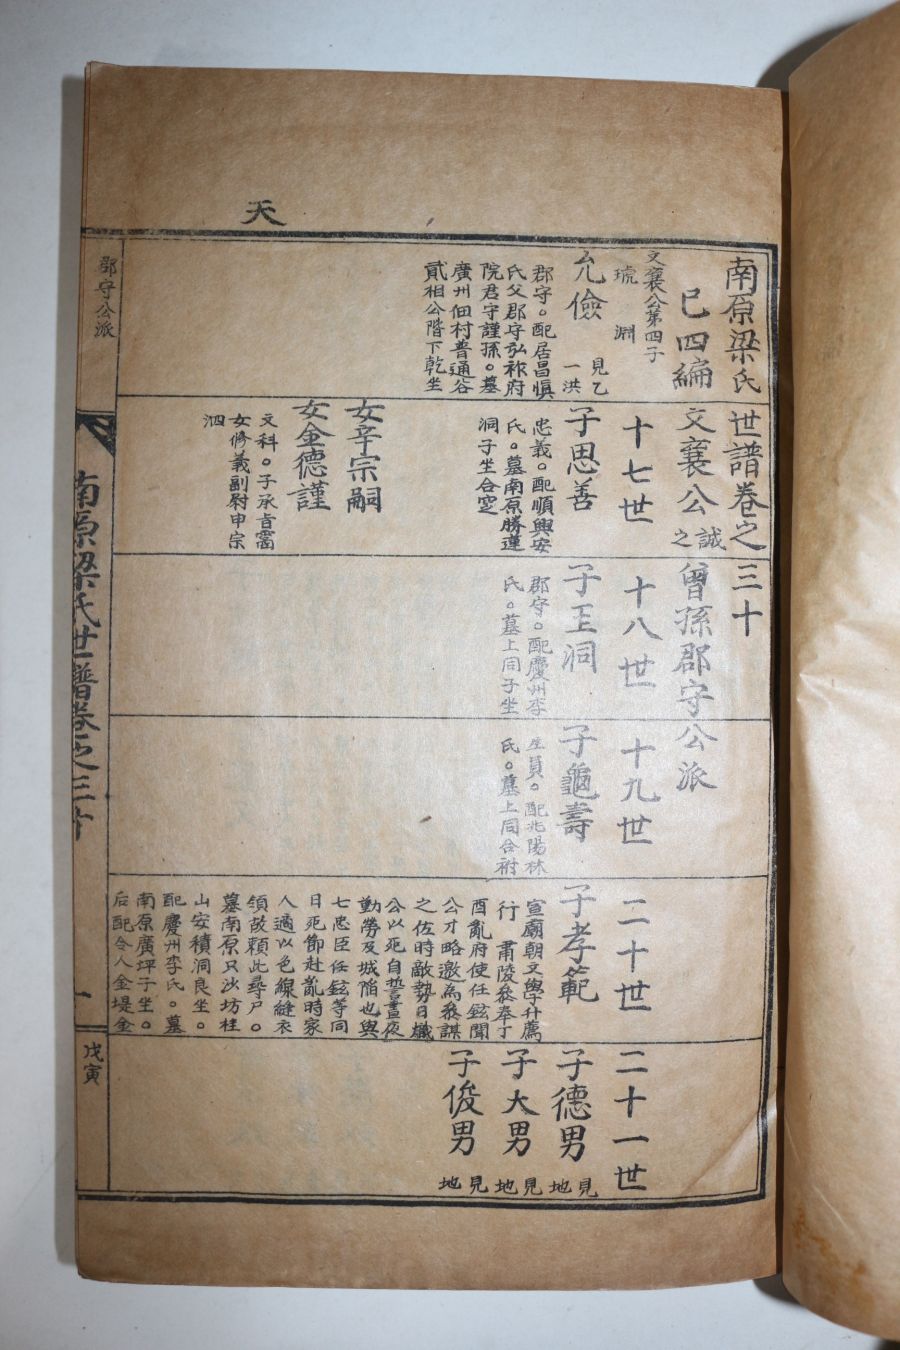 天
南原梁氏世譜卷之三十
巳四編 文襄公誠之 曾孫郡守公派
文襄公第四子
琥
淵
允儉
見乙
一洪
郡守。配居昌愼
氏父郡守弘祚府
院君守謹孫。墓
廣州佃村普通谷
貳相公階下乾坐
十七世
子思善
忠義。配順興安
氏。墓南原勝蓮
洞子坐合窆
女辛宗嗣
女金德謹
文科。子承
女修義副尉申宗
泗
十八世
子玉洞
郡守。配慶州李
氏。墓上同子坐
十九世
子龜壽
生員。配兆陽林
氏。墓上同合祔
二十世
子孝範
宣廟朝文學升薦
行 肅陵參奉丁
酉亂府使任鉉聞
公才略邀爲參謀
之佐時敵勢日熾
公以死自誓晝夜
勤勞及城陷也與
七忠臣任鉉等同
日死節赴亂時家
人適以色線縫衣
領故賴此尋尸。
墓南原只沙坊桂
山安積洞艮坐。
配慶州李氏。墓
南原廣坪子坐。
后配令人金堤金
二十一世
子德男
見地
子大男
見地
子俊男
見地
郡守公派
南原梁氏世譜卷之三十
一
戊寅